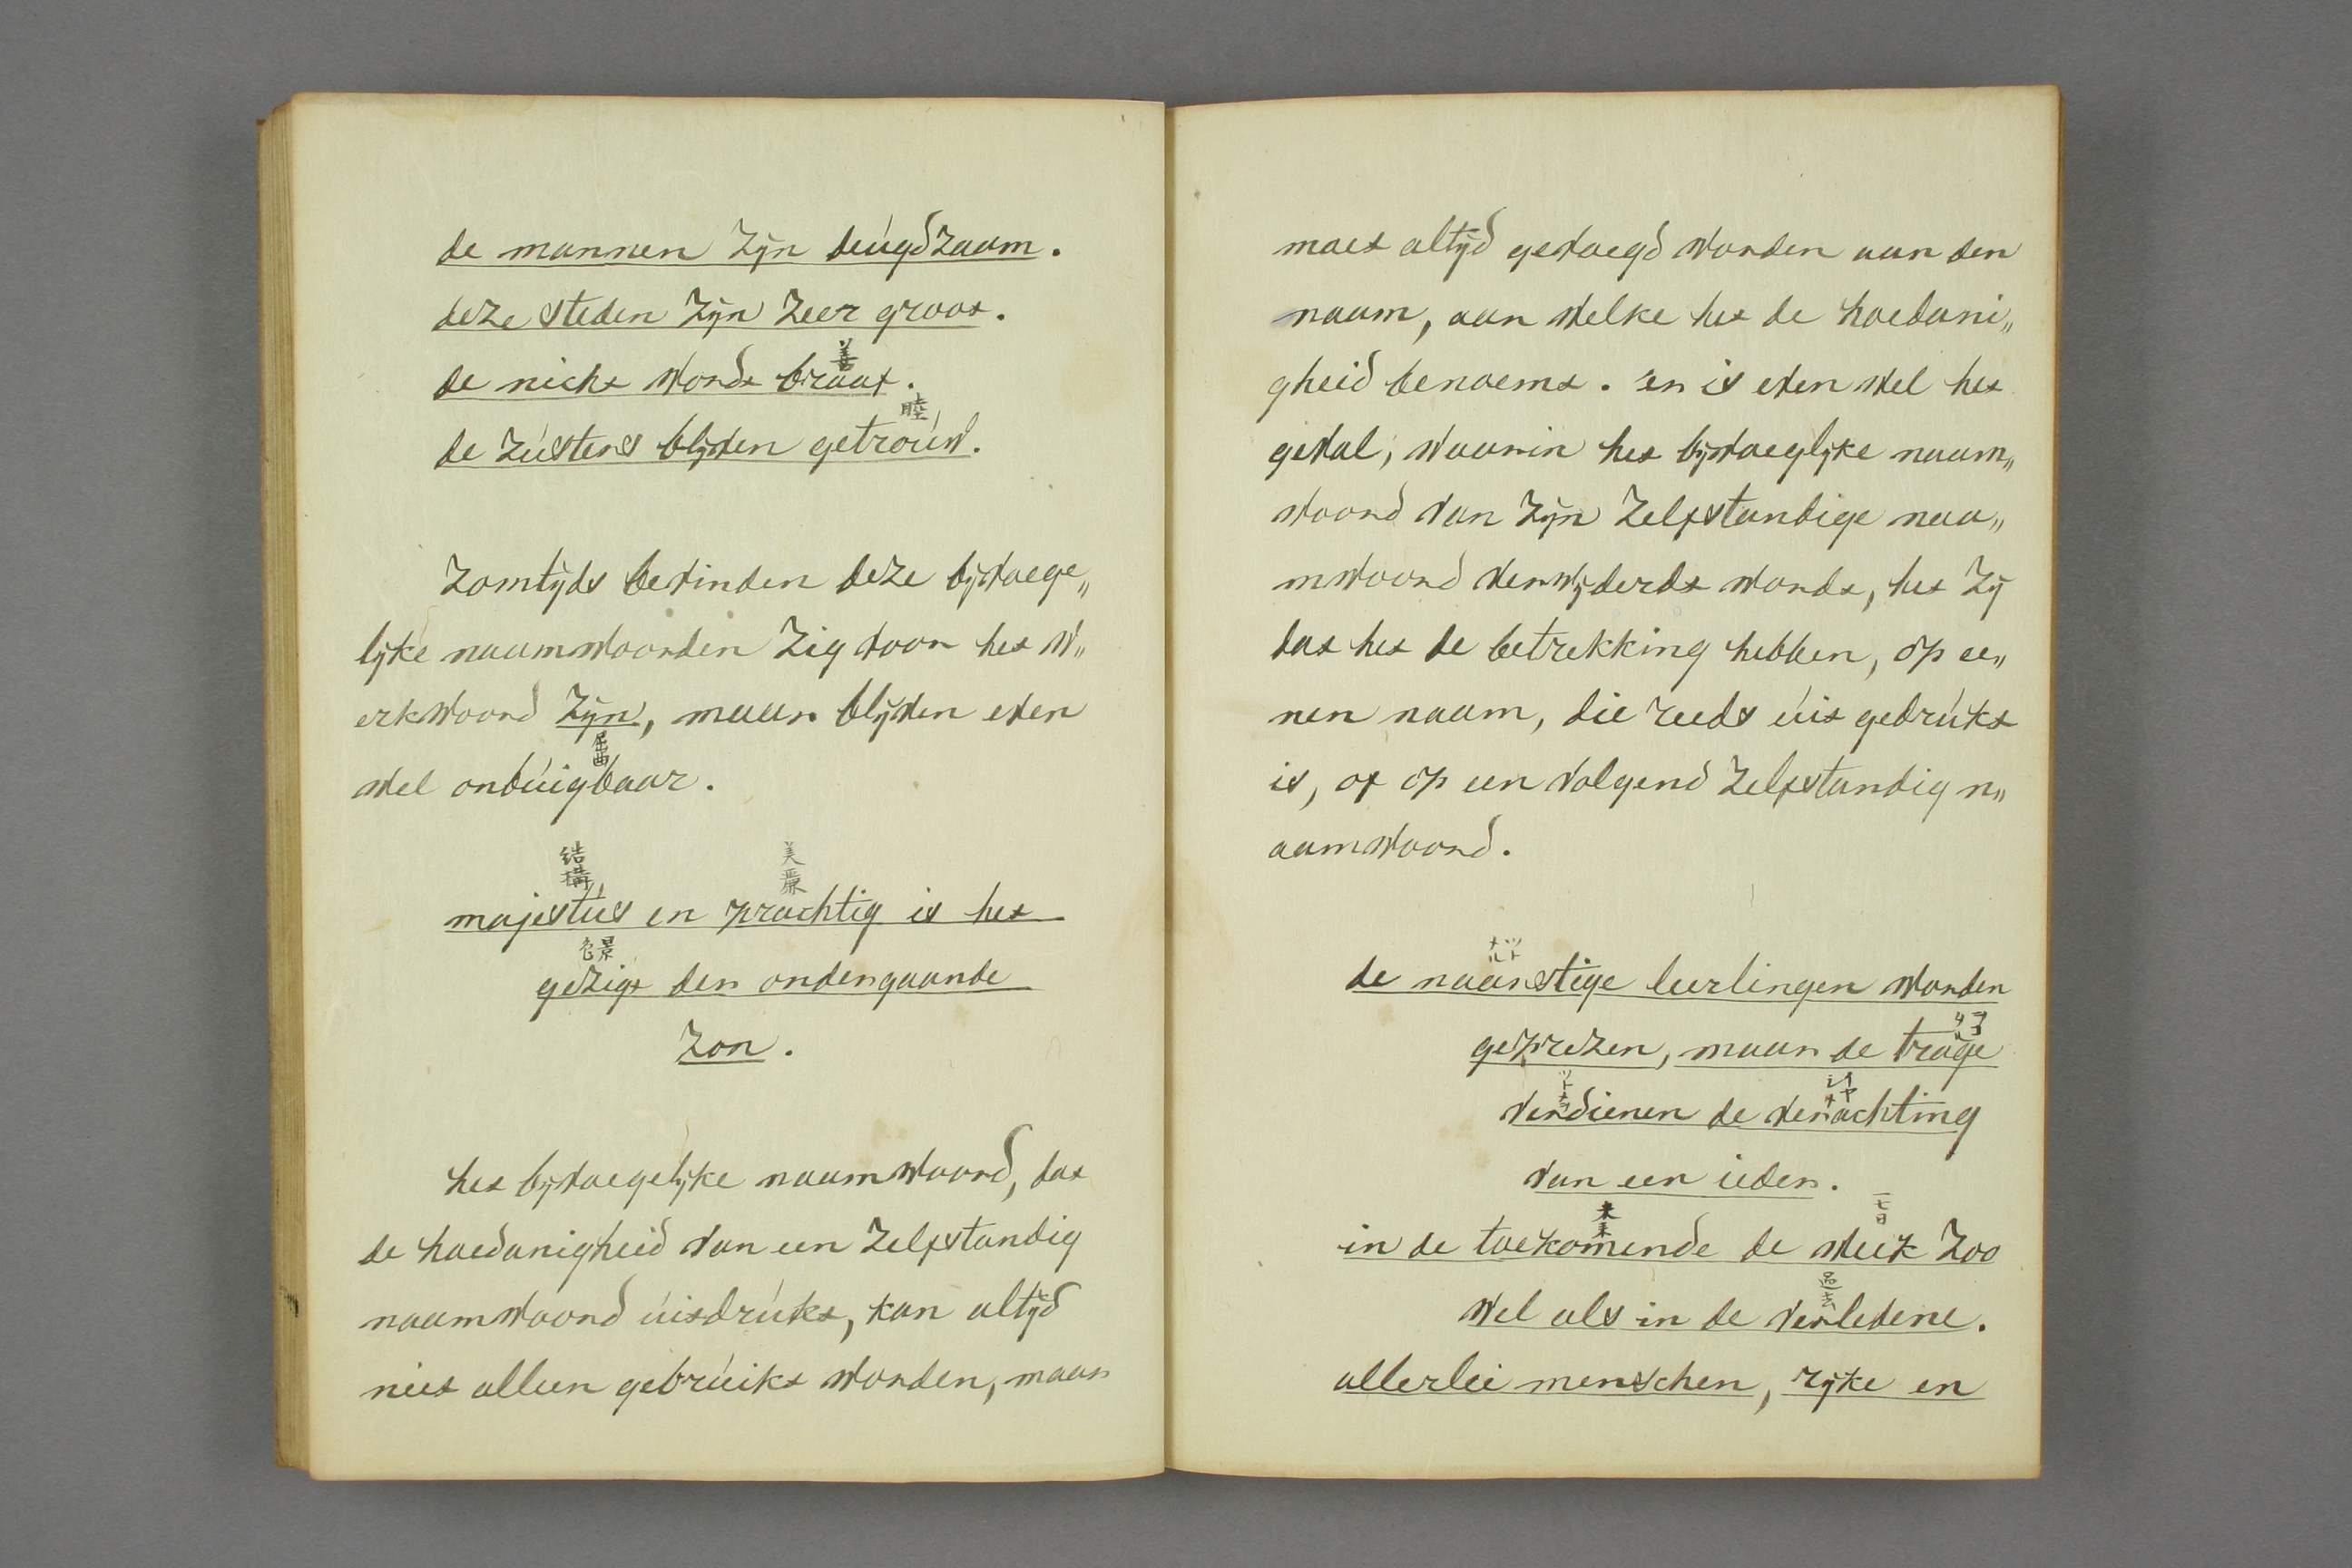 de mannen zÿn deúgdzaam.
deze steden zÿn zeer groot.
善
de nicht wordt braaf.
睦
de zústers blÿven getroúw.
zomtÿds bevinden deze bÿvoege„
lÿke naamwoorden zig voor het w„
erkwoord zÿn, maar blÿven even
屈曲
wel onbúigbaar.
結構 美麗
majestús en prachtig is het
景色
gezigt der ondergaande
zon.
het bÿvoegelÿke naamwoord, dat
de hoedanigheid van een zelfstandig
naamwoord úitdrúkt, kan altÿd
niet alleen gebrúikt worden, maar
moet altÿd gevoegd worden aan den
naam, aan welke het de hoedani„
gheid benoemt. en is even wel het
geval, waarin het bÿvoeglÿke naam„
woord van zÿn zelfstandige naa„
mwoord verwÿderdt wordt, het zÿ
dat het de betrekking hebben, op ee„
nen naam, die reeds úit gedrúkt
is, of op een volgend zelfstandig n„
aamwoord.
de naarstige leerlingen worden
geprezen, maar de trage
verdienen de verachting
van een ieder.
未来 一七日
in de toekomende de week zoo
過去
wel als in de verledene.
allerlei menschen, rÿke en